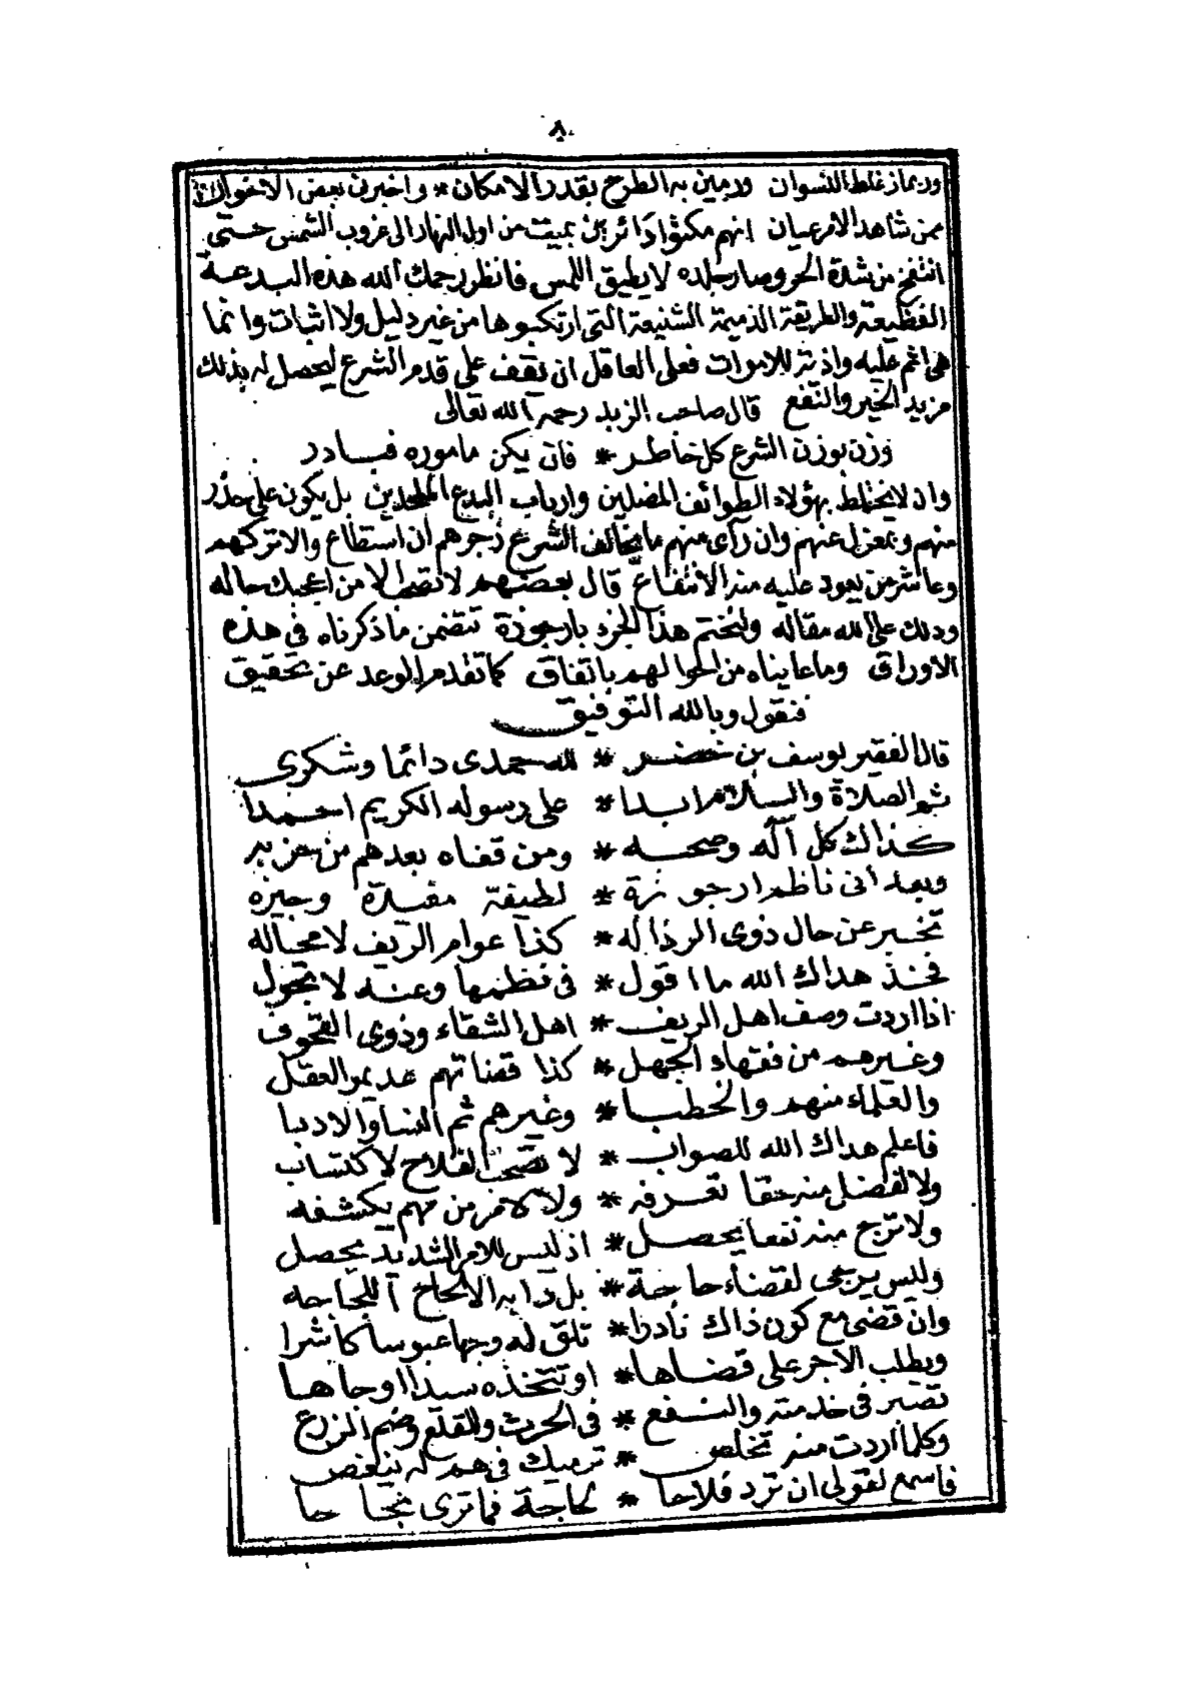 ٨٠
وربما زغلط النسوان ورمين به الطرح بقدر الامكان * واخبرني بعض الاخوان
ممن شاهد الامر عيان انهم مكثوا دائرين بميت من اول النهار الى غروب الشمس حتى
انتفخ من شدة الحر وصار جلده لا يطيق اللمس فانظر رحمك الله هذه البدعة
الفظيعة والطريقة الذميمة الشنيعة التي ارتكبوها من غير دليل ولا اثبات وانما
هي اثم عليه واذية للاموات فعلى العاقل ان يقف على قدم الشرع ليحصل له بذلك
مزيد الخير والنفع قال صاحب الزبد رحمه الله تعالى
وزن بوزن الشرع كل خاطر * فان يكن ماموره فبادر
وان لا يختلط بهؤلاء الطوائف المضلين وارباب البدع الملحدين بل يكون على حذر
منهم وبمعزل عنهم وان رآى منهم ما يخالف الشرع زجرهم ان استطاع والا تركهم
وعاشر من يعود عليه منه الانتفاع قال بعضهم لا تصحب الا من اعجبك حاله
ودلك على الله مقاله ولنختم هذا الجزء بارجوزة تتضمن ما ذكرناه في هذه
الاوراق وما عايناه من احوالهم باتفاق كما تقدم الوعد عن تحقيق
فنقول وبالله التوفيق
قال الفقير يوسف بن خضر * لله حمدي دائما وشكري
ثم الصلاة والسلام ابدا * على رسوله الكريم احمدا
كذاك كل آله وصحبه * ومن قفاه بعدهم من حزبه
وبعد اني ناظم ارجوزة * لطيفة مفيدة وجيزه
تخبر عن حال ذوي الرذاله * كذا عوام الريف لا محاله
فخذ هداك الله ما اقول * في نظمها وعنه لا تحول
اذا اردت وصف اهل الريف * اهل الشقاء وذوي التحوف
وغيرهم من فقهاء الجهل * كذا قضاتهم عديم العقل
والعلماء منهم والخطبا * وغيرهم ثم النسا والادبا
فاعلم هداك الله للصواب * لا تصحب الفلاح لاكتساب
ولا لفضل منه حقا تعرفه * ولا لامر من مهم يكشفه
ولا ترج منه نفعا يحصل * اذ ليس للامر الشديد يحصل
وليس يرجى لقضاء حاجة * بل دابه الالحاح اللجاجه
وان قضى مع كون ذاك نادرا * تلق له وجها عبوسا كاشرا
ويطلب الاجر على قضاها * او تتخذه سيدا اوجاها
تصير في خدمته والنفع * في الحرث والقلع وضم الزرع
وكلما اردت منه تخلص * ترميك في هم له ينغص
فاسمع لقولي ان ترد فلاحا * لحاجة فما ترى نجاحا